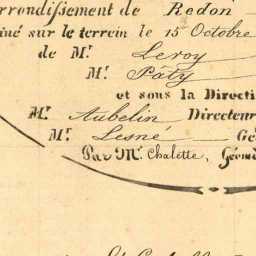 rrondissement de Redon
iné sur le terrein le 15 Octobre
de Mr. Leroy
Mr. Pâty
et sous la Directi
Mr. Aubelin Directeur
Mr. Lesné Gé
Par Mr. Chalette, Géom